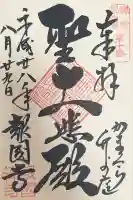 奉拝
かまくら
竹の庭
聖大悲殿
平成廿八年
八月廿日
報國寺